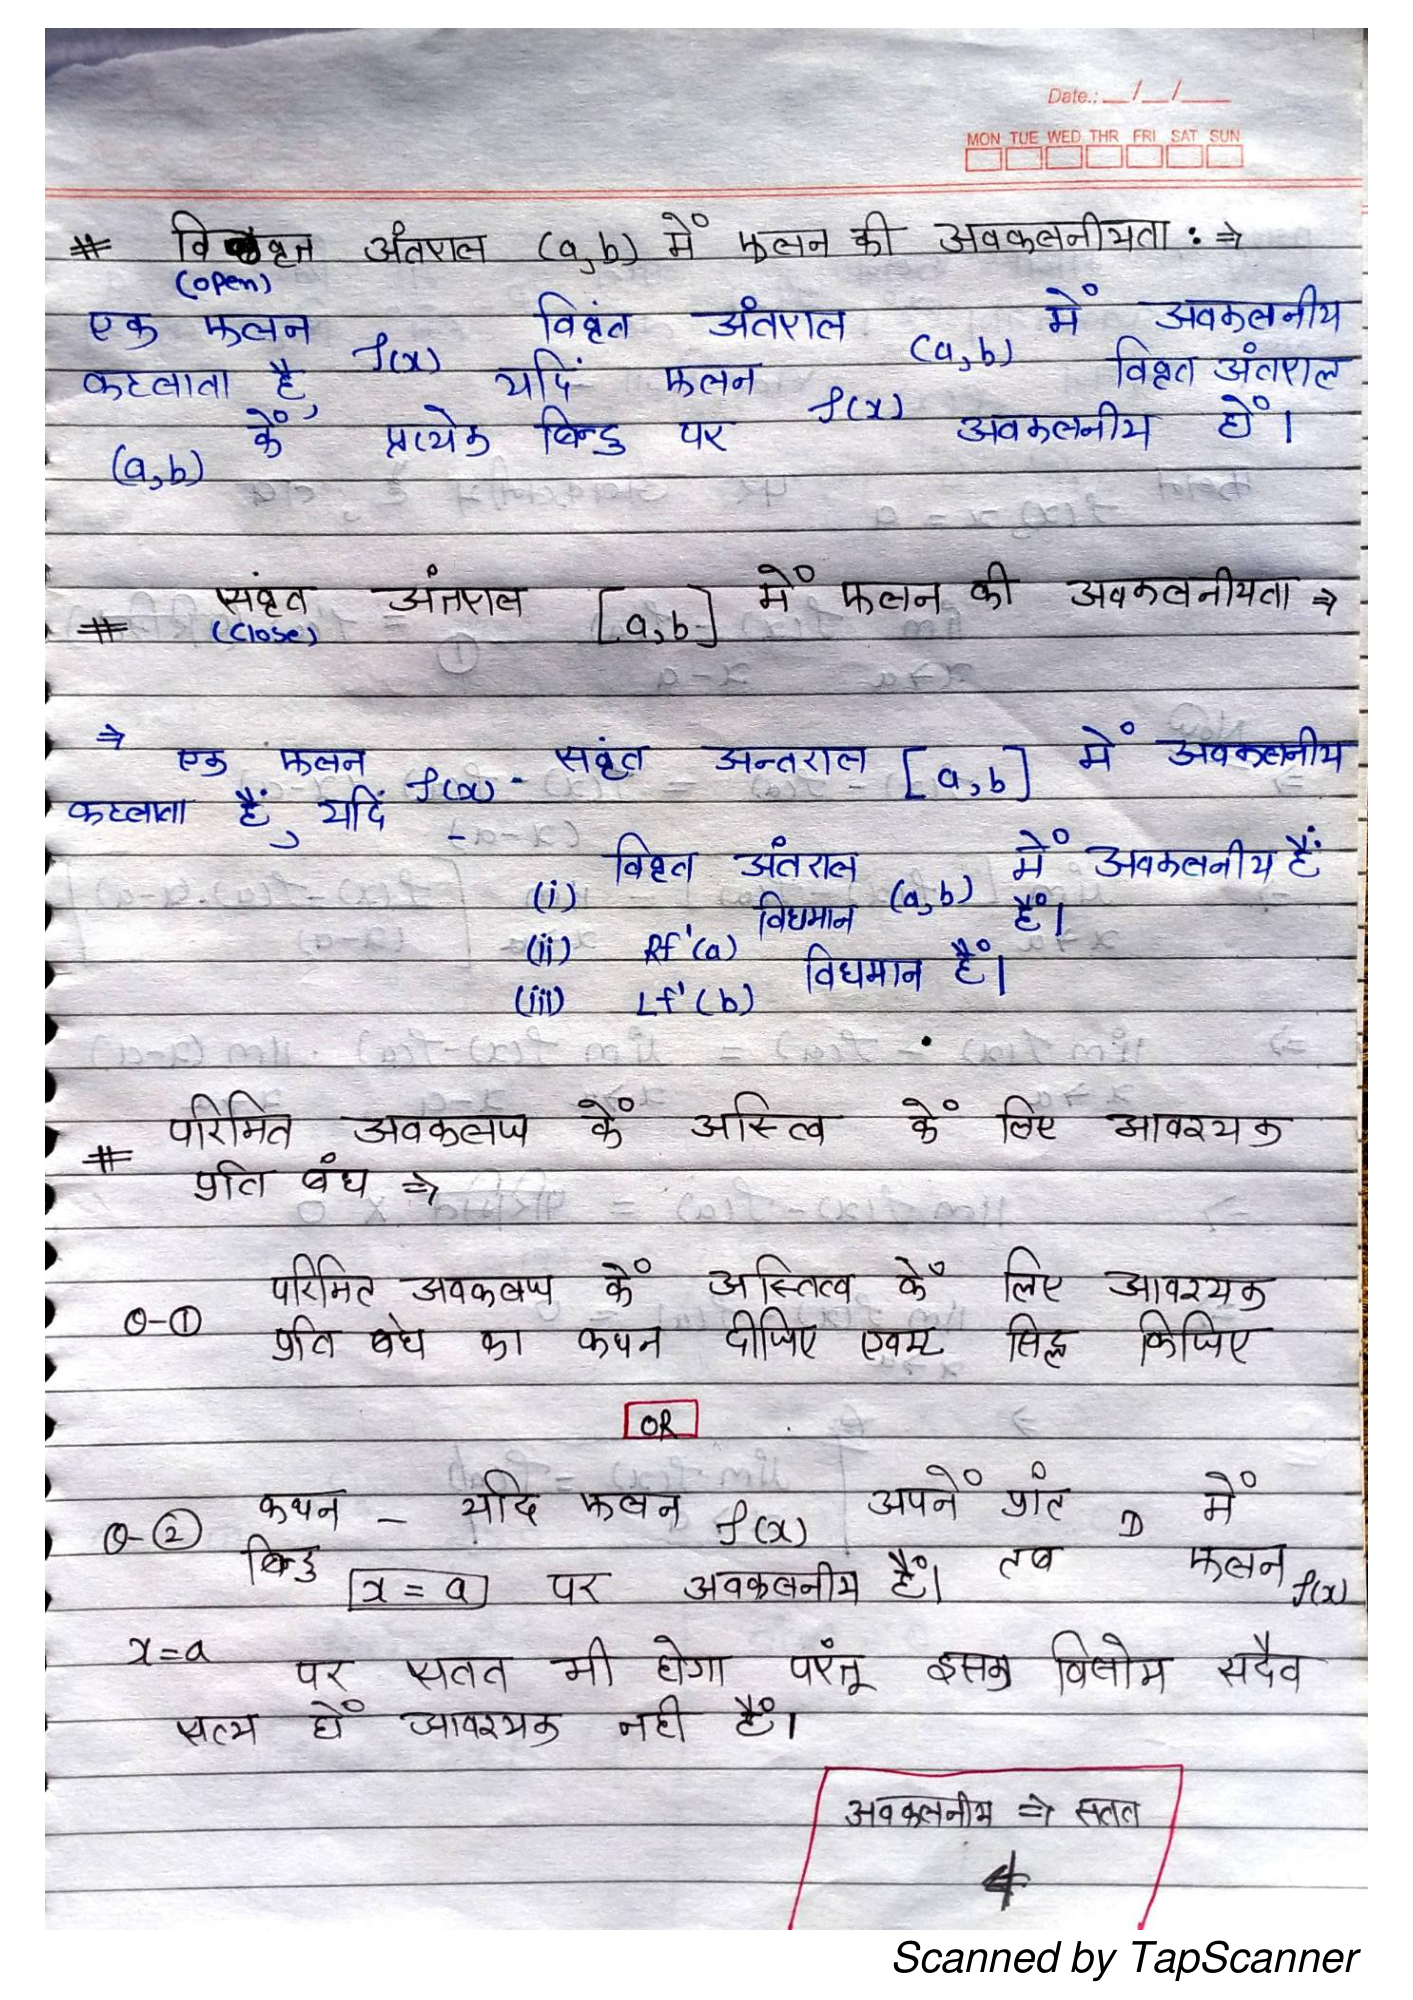 Date.: __/__/____
MON TUE WED THR FRI SAT SUN
# विवृत अंतराल (a,b) में फलन की अवकलनीयता : ⇒
(open)
एक फलन f(x) विवृंत अंतराल (a,b) में अवकलनीय
कहलाता है, यदिं फलन f(x) विवृत अंतराल
(a,b) कें प्रत्येक बिन्दु पर अवकलनीय हों।
# संवृत अंतराल [a,b] में फलन की अवकलनीयता ⇒
(close)
⇒ एक फलन f(x) - सवृंत अन्तराल [a,b] में अवकलनीय
कहलाता हैं, यदिं -
(i) विवृत अंतराल (a,b) में अवकलनीय हैं
(ii) Rf'(a) विधमान हैं।
(iii) Lf'(b) विधमान हैं।
# परिमित अवकलज कें अस्तिव कें लिए आवश्यक
प्रति बंध ⇒
Q-① परिमित अवकलज कें अस्तित्व कें लिए आवश्यक
प्रति बंध का कथन दीजिए एवम सिद्ध किजिए
OR
Q-② कथन - यदि फलन f(x) अपनें प्रांत D में
बिन्दु x = a पर अवकलनीय हैं। तब फलन f(x)
x=a पर सतत भी होगा परंतू इसका विलोम सदैव
सत्य हों आवश्यक नही हैं।
अवकलनीय ⇒ सतत
⇍
Scanned by TapScanner